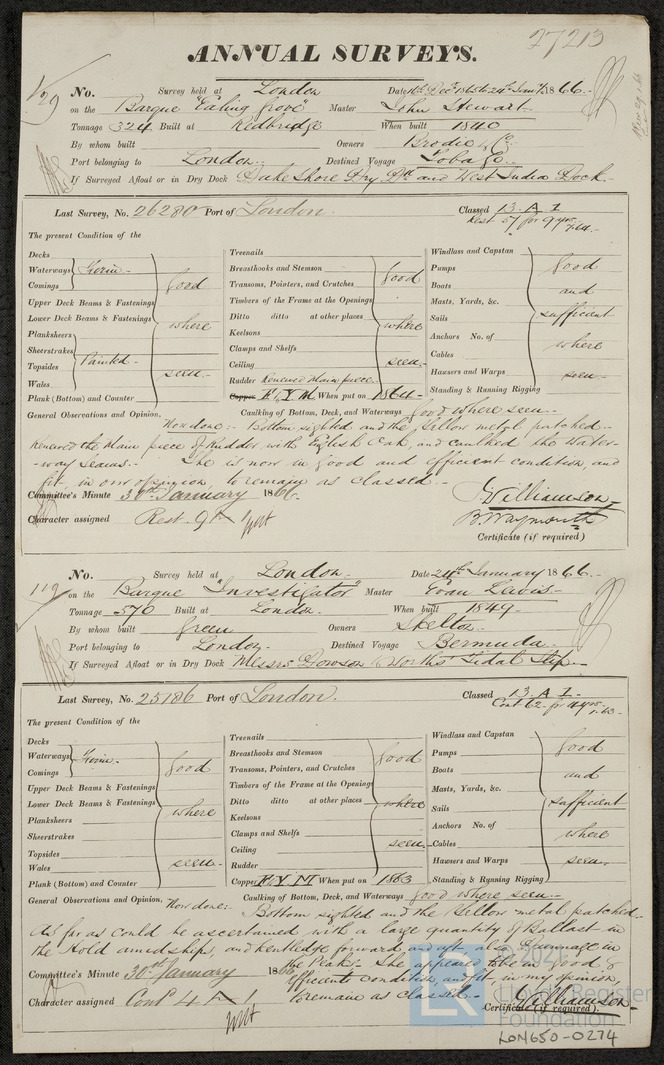 27213
ANNUAL SURVEYS.
1/29 No. Survey held at London Date 16th Decr. 1865 to 24th Jany. 1866.
on the Barque "Ealing Grove" Master John Stewart
Tonnage 324 Built at Redbridge When built 1840
By whom built Owners Brodie & Co.
Port belonging to London. Destined Voyage Tobago.
If Surveyed Afloat or in Dry Dock Duke Shore Dry Dk. and West India Dock.
Last Survey, No. 26280 Port of London. Classed 13. A 1
Rest. 57 for 9 yrs 7.64.
The present Condition of the
Decks
Waterways
Comings
Upper Deck Beams & Fastenings
Lower Deck Beams & Fastenings
Planksheers
Sheerstrakes
Topsides Painted.
Wales
Plank (Bottom) and Counter
good
where
seen.
Treenails
Breasthooks and Stemson
Transoms, Pointers, and Crutches
Timbers of the Frame at the Openings
Ditto ditto at other places
Keelsons
Clamps and Shelfs
Ceiling
Rudder Renewed Main piece.
Copper F. Y. M. When put on 1864
good
where
seen.
Windlass and Capstan
Pumps
Boats
Masts, Yards, &c.
Sails
Anchors No. of
Cables
Hawsers and Warps
Standing & Running Rigging
good
and
sufficient
where
seen
General Observations and Opinion, Caulking of Bottom, Deck, and Waterways good where seen.
Now done:- Bottom sighted and the Yellow metal patched.
Renewed the Main piece of Rudder with English Oak, and caulked the Water-
-way Seams.- She is now in good and efficient condition, and
fit, in our opinion, to remain as classed.-
Committee's Minute 30th January 1866.
Character assigned Rest. 9 A 1
Williamson
B. Waymouth
Certificate (if required)
119 No. Survey held at London Date 24th January 1866.
on the Barque "Investigator" Master Evan Lewis
Tonnage 570 Built at London. When built 1849
By whom built Green Owners Skelton.
Port belonging to London. Destined Voyage Bermuda.
If Surveyed Afloat or in Dry Dock Messrs Dowson & Worths' Tidal Slip.
Last Survey, No. 25186 Port of London. Classed 13. A 1.
Cont 62. for 4 yrs 1.63.
The present Condition of the
Decks
Waterways
Comings
Upper Deck Beams & Fastenings
Lower Deck Beams & Fastenings
Planksheers
Sheerstrakes
Topsides
Wales
Plank (Bottom) and Counter
good
where
seen.
Treenails
Breasthooks and Stemson
Transoms, Pointers, and Crutches
Timbers of the Frame at the Openings
Ditto ditto at other places
Keelsons
Clamps and Shelfs
Ceiling
Rudder
Copper F. Y. M When put on 1863
good
where
seen.
Windlass and Capstan
Pumps
Boats
Masts, Yards, &c.
Sails
Anchors No. of
Cables
Hawsers and Warps
Standing & Running Rigging
good
and
sufficient
where
seen.
General Observations and Opinion, Caulking of Bottom, Deck, and Waterways good where seen.
Now done: Bottom sighted and the Yellow metal patched.
As far as could be ascertained with a large quantity of Ballast in
the Hold amidships, and Kentledge forward and aft, also Dunnage in
the Peaks. She appeared to be in good &
efficient condition, and fit in my opinion,
to remain as classed.
Committee's Minute 30th January 1866
Character assigned Cont 4 A 1
Williamson
Certificate (if required).
© 2021
Lloyd's Register
Foundation
LR
LON650-0274